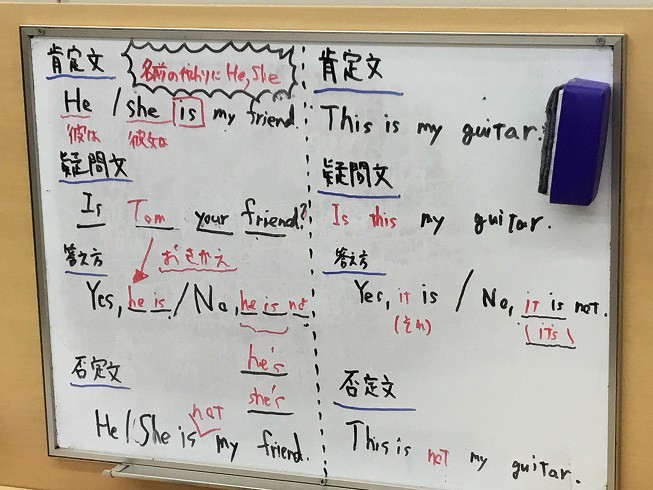 肯定文
名前の代わりに He, She
He / she is my friend.
彼は 彼女は
疑問文
Is Tom your friend?
答え方 おきかえ
Yes, he is / No, he is not
he's
she's
否定文
He / She is not my friend.
肯定文
This is my guitar.
疑問文
Is this my guitar.
答え方
Yes, it is / No, it is not.
(それ) (it's)
否定文
This is not my guitar.